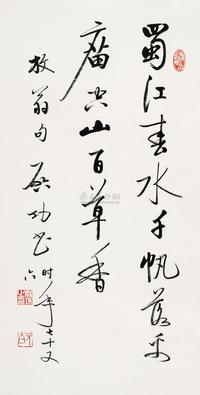 蜀江春水千帆落禹
庿空山百草香
放翁句 启功书 时年七十又
六